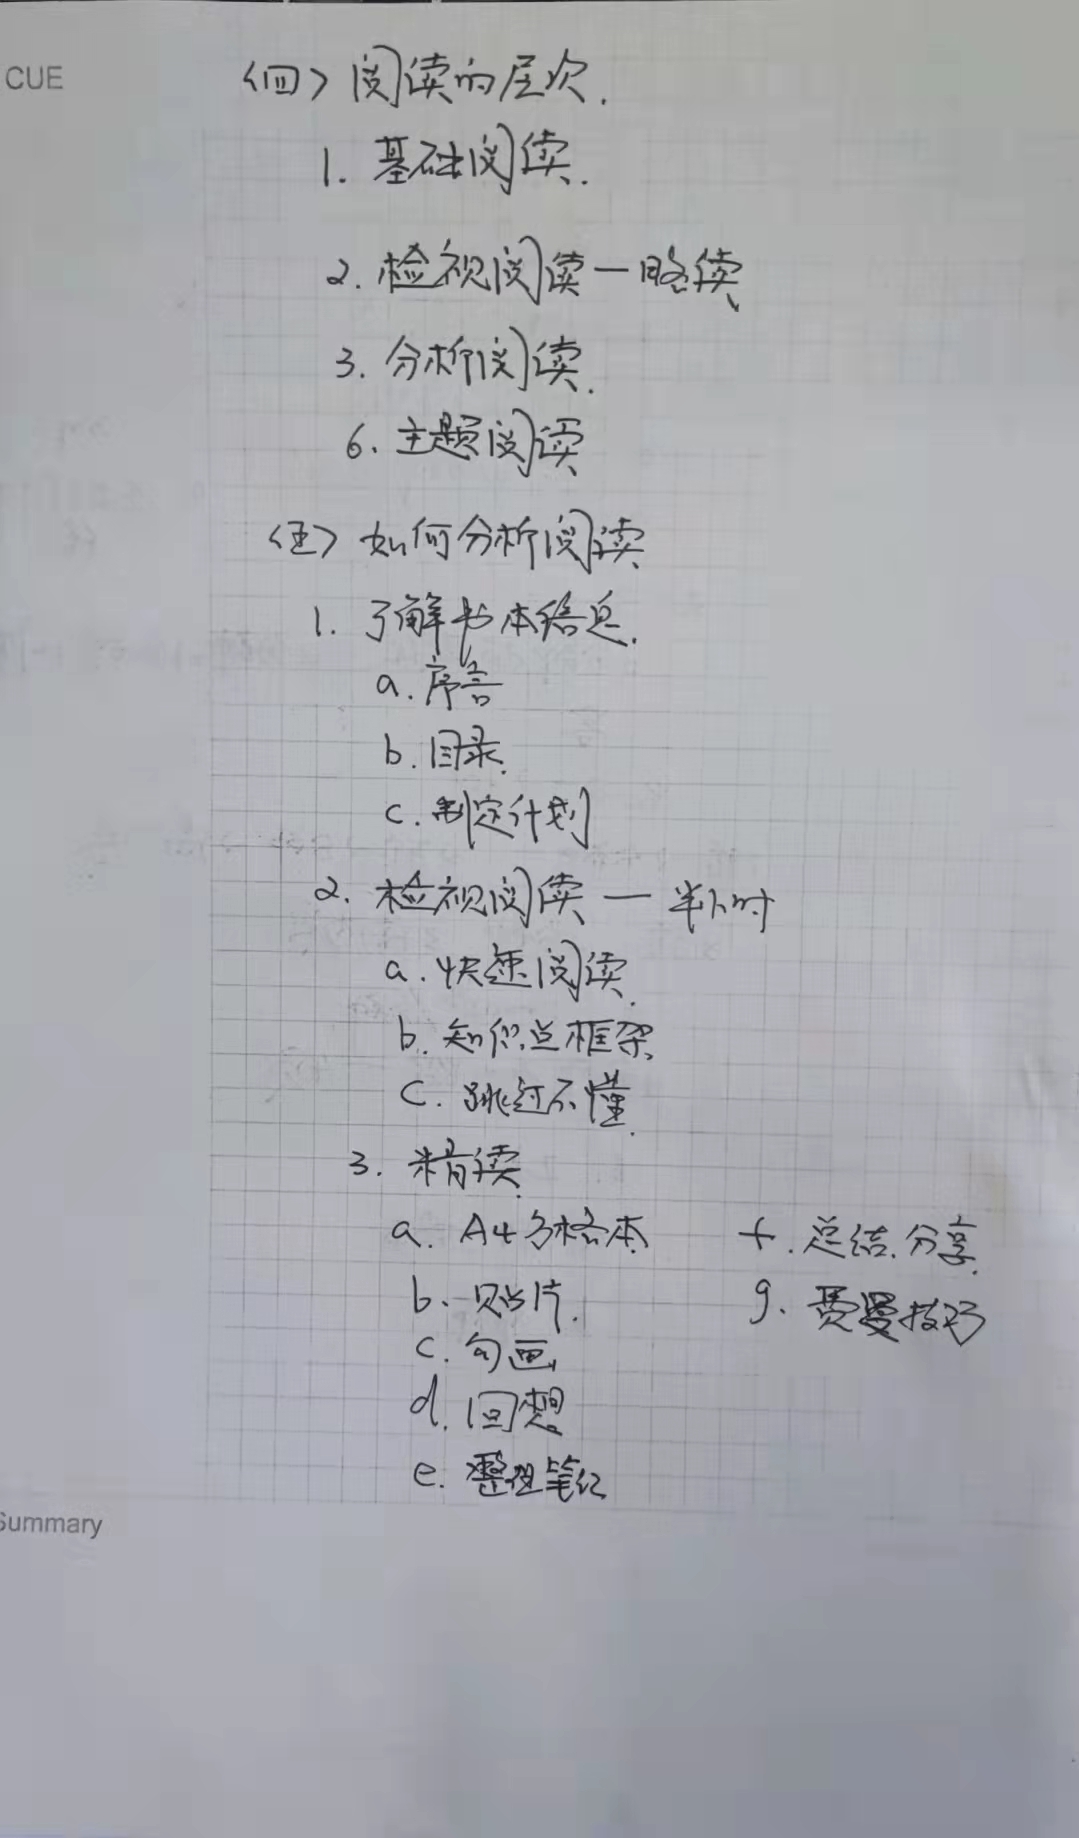 CUE
〈四〉阅读的层次.
1. 基础阅读.
2. 检视阅读—略读
3. 分析阅读.
6. 主题阅读
〈五〉如何分析阅读
1. 了解书本信息.
a. 序言
b. 目录.
c. 制定计划
2. 检视阅读 — 半小时
a. 快速阅读.
b. 知识点框架
c. 跳过不懂.
3. 精读.
a. A4方格本
b. 贴片.
c. 勾画
d. 回想
e. 整理笔记
f. 总结.分享.
g. 费曼技巧
Summary